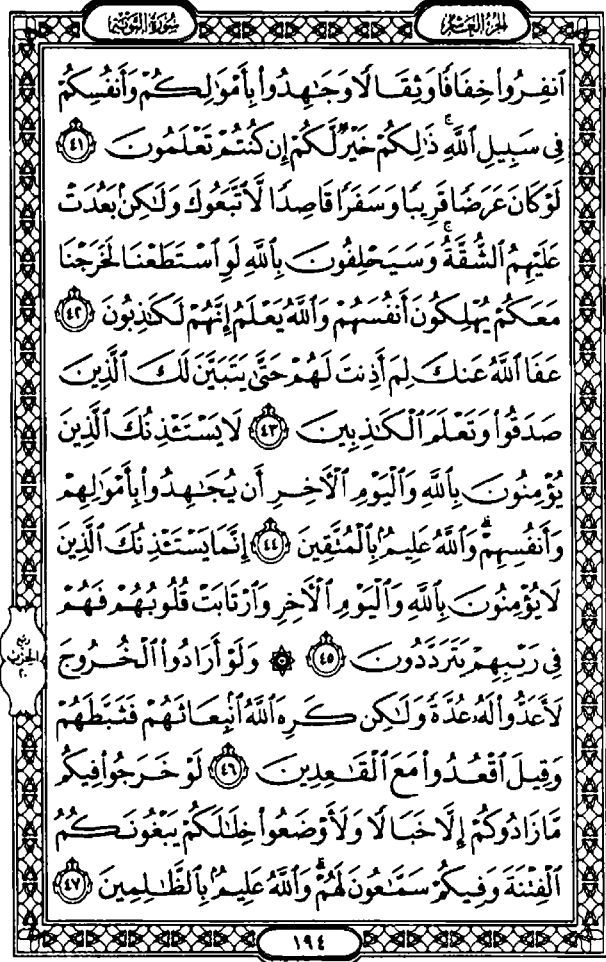 سُورَةُ التَّوْبَةِ
الجزء العاشر
ٱنفِرُوا۟ خِفَافًا وَثِقَالًا وَجَٰهِدُوا۟ بِأَمْوَٰلِكُمْ وَأَنفُسِكُمْ
فِى سَبِيلِ ٱللَّهِ ۚ ذَٰلِكُمْ خَيْرٌ لَّكُمْ إِن كُنتُمْ تَعْلَمُونَ ٤١
لَوْ كَانَ عَرَضًا قَرِيبًا وَسَفَرًا قَاصِدًا لَّٱتَّبَعُوكَ وَلَٰكِنۢ بَعُدَتْ
عَلَيْهِمُ ٱلشُّقَّةُ ۚ وَسَيَحْلِفُونَ بِٱللَّهِ لَوِ ٱسْتَطَعْنَا لَخَرَجْنَا
مَعَكُمْ يُهْلِكُونَ أَنفُسَهُمْ وَٱللَّهُ يَعْلَمُ إِنَّهُمْ لَكَٰذِبُونَ ٤٢
عَفَا ٱللَّهُ عَنكَ لِمَ أَذِنتَ لَهُمْ حَتَّىٰ يَتَبَيَّنَ لَكَ ٱلَّذِينَ
صَدَقُوا۟ وَتَعْلَمَ ٱلْكَٰذِبِينَ ٤٣ لَا يَسْتَـْٔذِنُكَ ٱلَّذِينَ
يُؤْمِنُونَ بِٱللَّهِ وَٱلْيَوْمِ ٱلْءَاخِرِ أَن يُجَٰهِدُوا۟ بِأَمْوَٰلِهِمْ
وَأَنفُسِهِمْ ۗ وَٱللَّهُ عَلِيمٌۢ بِٱلْمُتَّقِينَ ٤٤ إِنَّمَا يَسْتَـْٔذِنُكَ ٱلَّذِينَ
لَا يُؤْمِنُونَ بِٱللَّهِ وَٱلْيَوْمِ ٱلْءَاخِرِ وَٱرْتَابَتْ قُلُوبُهُمْ فَهُمْ
فِى رَيْبِهِمْ يَتَرَدَّدُونَ ٤٥ ۞ وَلَوْ أَرَادُوا۟ ٱلْخُرُوجَ
ربع
الحزب
٢٠
لَأَعَدُّوا۟ لَهُۥ عُدَّةً وَلَٰكِن كَرِهَ ٱللَّهُ ٱنۢبِعَاثَهُمْ فَثَبَّطَهُمْ
وَقِيلَ ٱقْعُدُوا۟ مَعَ ٱلْقَٰعِدِينَ ٤٦ لَوْ خَرَجُوا۟ فِيكُم
مَّا زَادُوكُمْ إِلَّا خَبَالًا وَلَأَوْضَعُوا۟ خِلَٰلَكُمْ يَبْغُونَكُمُ
ٱلْفِتْنَةَ وَفِيكُمْ سَمَّٰعُونَ لَهُمْ ۗ وَٱللَّهُ عَلِيمٌۢ بِٱلظَّٰلِمِينَ ٤٧
١٩٤